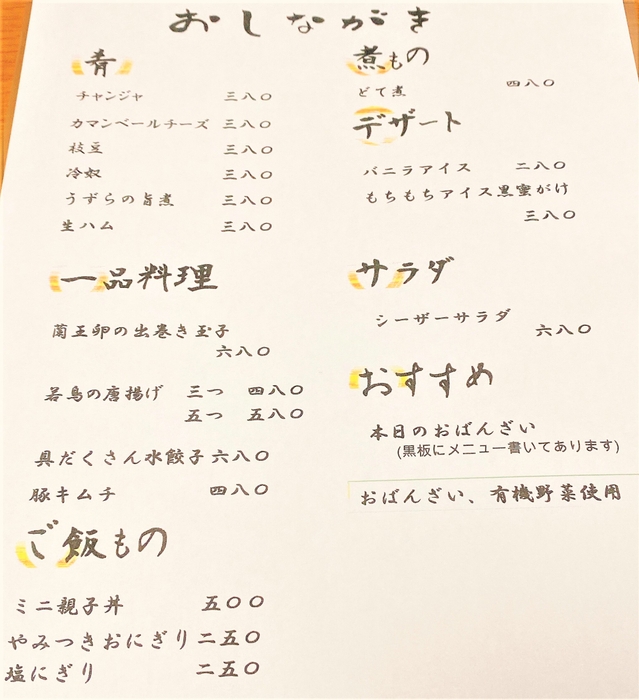 おしながき
肴
チャンジャ 三八〇
カマンベールチーズ 三八〇
枝豆 三八〇
冷奴 三八〇
うずらの旨煮 三八〇
生ハム 三八〇
一品料理
蘭王卵の出巻き玉子
六八〇
若鳥の唐揚げ 三つ 四八〇
五つ 五八〇
具だくさん水餃子 六八〇
豚キムチ 四八〇
ご飯もの
ミニ親子丼 五〇〇
やみつきおにぎり 二五〇
塩にぎり 二五〇
煮もの
どて煮 四八〇
デザート
バニラアイス 二八〇
もちもちアイス黒蜜がけ
三八〇
サラダ
シーザーサラダ
六八〇
おすすめ
本日のおばんざい
(黒板にメニュー書いてあります)
おばんざい、有機野菜使用